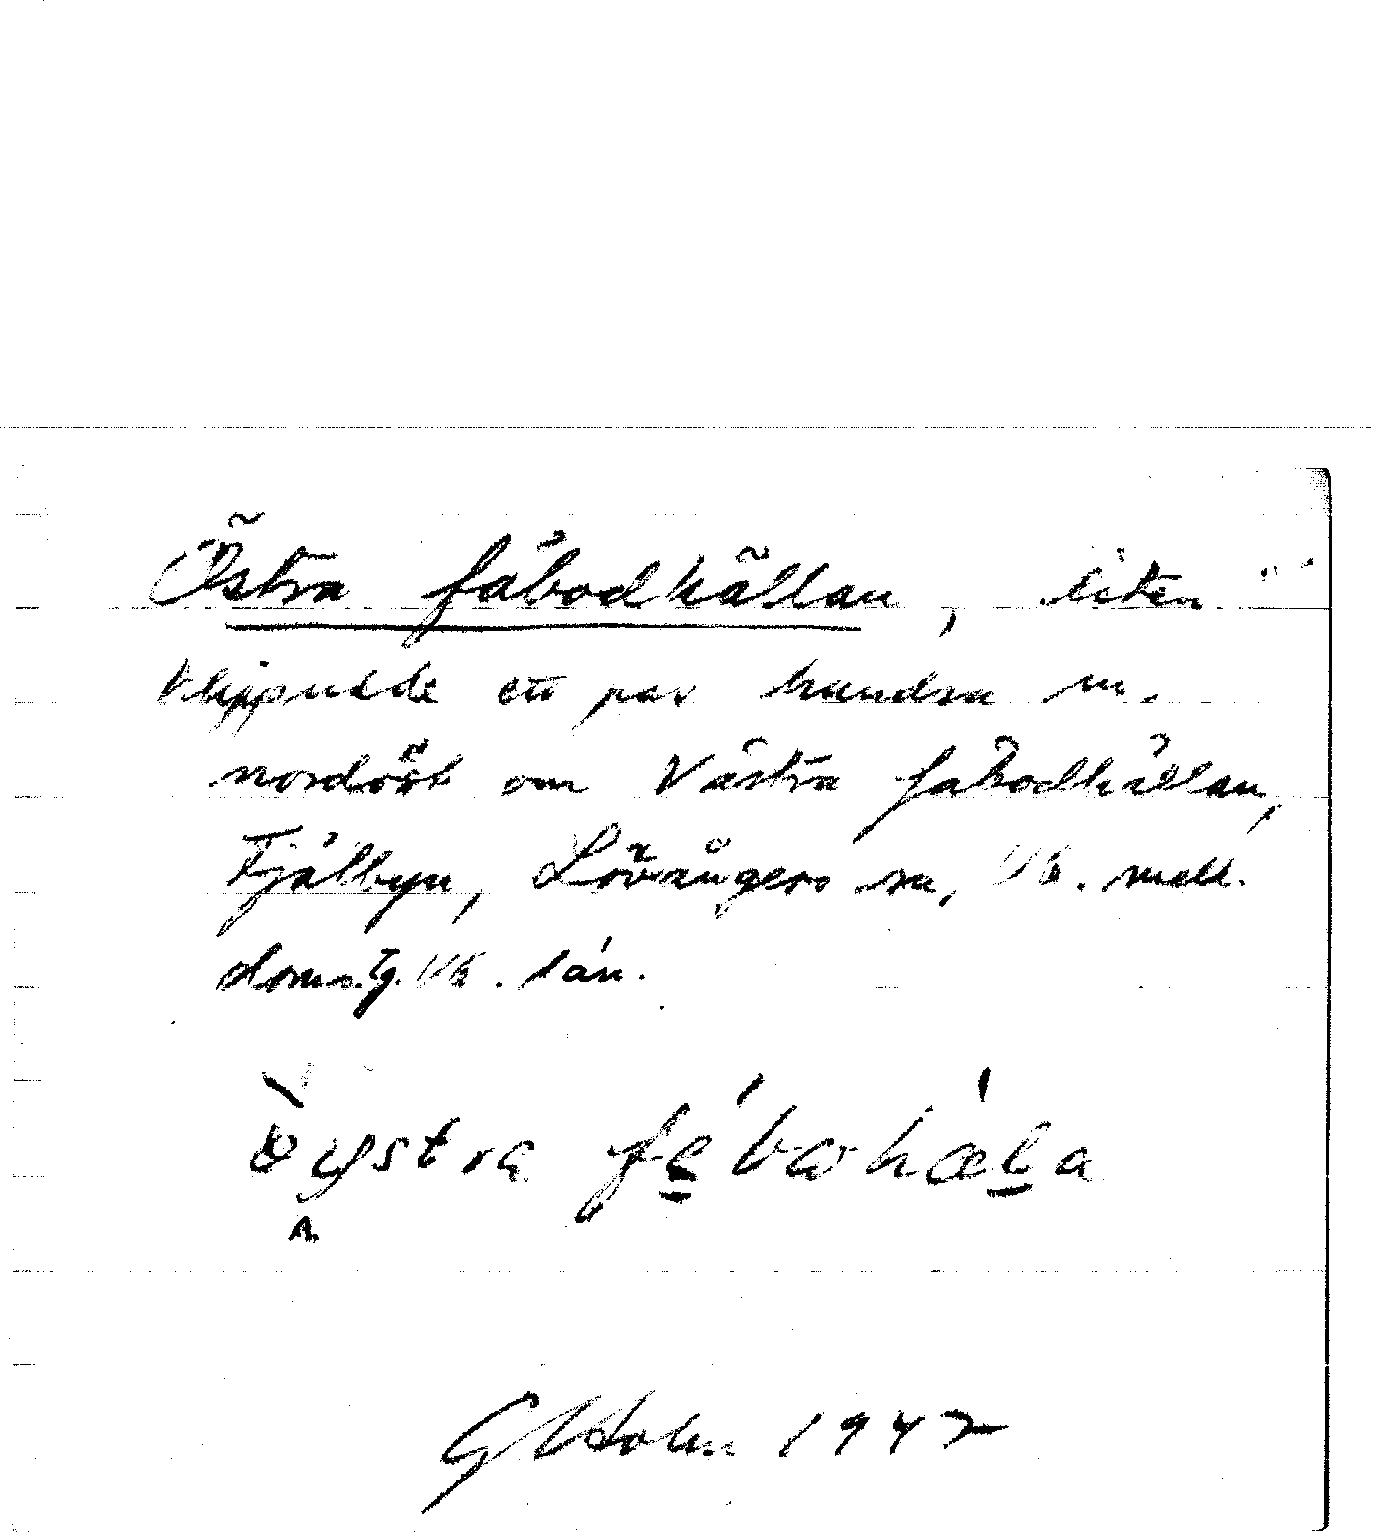 Östra fäbodhällan, liten
klippudde ett par hundra m.
nordöst om Västra fäbodhällan,
Fjälbyn, Lövångers sn, Vb. mell.
doms.tg. Vb. län.
G Holm 1947